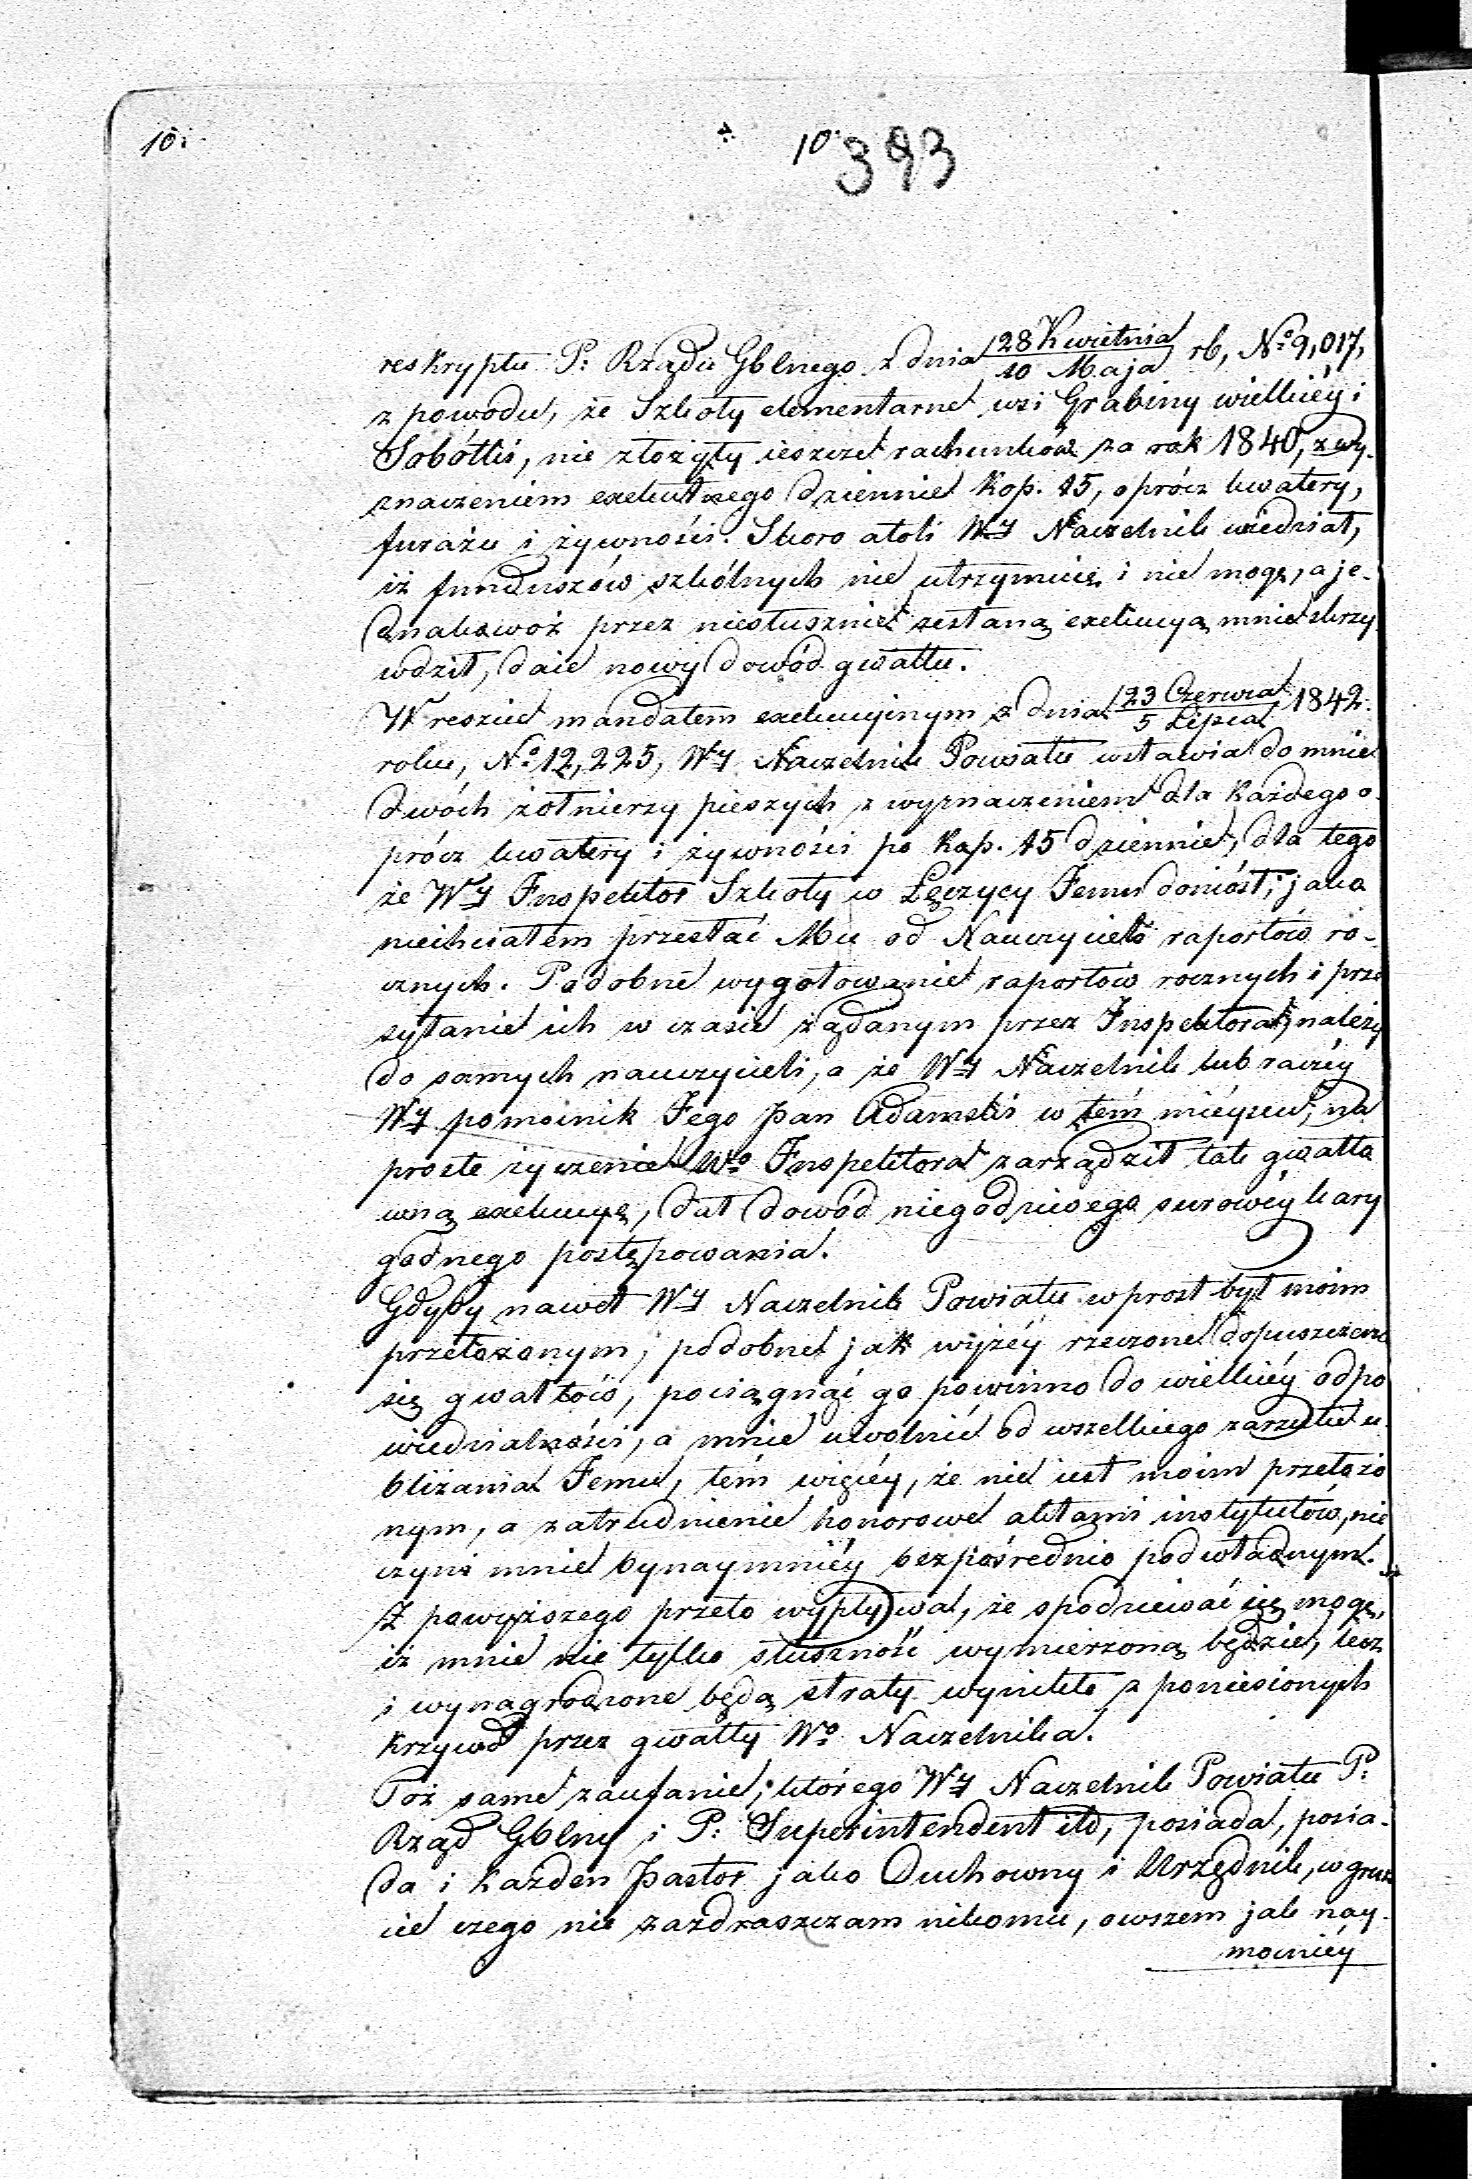 10.
10.
393
reskryptu P: Rządu Gblnego z dnia 28 Kwietnia / 10 Maja rb, No 9,017,
z powodu, że Szkoły elementarne wsi Grabiny wielkiéy i
Sobótki, nie złożyły ieszcze rachunków za rok 1840, z wy-
znaczeniem exekutnego dziennie Kop. 15, oprócz kwatery,
furażu i żywności. Skoro atoli WJ Naczelnik wiedział,
iż funduszów szkólnych nie utrzymuię i nie mogę, a je-
dnakowoż przez niesłusznie zesłaną exekucyą mnie skrzy-
wdził, daie nowy dowód gwałtu.
Wreszcie mandatem exekucyinym z dnia 23 Czerwca / 5 Lipca 1842
roku, No 12,225, WJ Naczelnik Powiatu wstawia do mnie
dwóch żołnierzy pieszych z wyznaczeniem dla każdego o-
prócz kwatery i żywności po Kop. 15 dziennie, dla tego
że WJ Inspektor Szkoły w Łęczycy Jemu doniósł, jako
niechciałem przesłać Mu od Nauczycieli raportów ro-
cznych. Podobne wygotowanie raportów rocznych i prze
syłanie ich w czasie żądanym przez Inspektora, należy
do samych nauczycieli, a że WJ Naczelnik lub raczéy
WJ pomocnik Jego Pan Adamski w tém miéyscu, na
proste życzenie Wo Inspektora zarządził tak gwałto
wną exekucyę, dał dowód niegodziwego surowéy kary
godnego postępowania.
Gdyby nawet WJ Naczelnik Powiatu wprost był moim
przełożonym, podobne jak wyżéy rzeczone dopuszczenie
się gwałtów, pociągnąć go powinno do wielkiéy odpo
wiedzialności, a mnie uwolnić od wszelkiego zarzutu u-
bliżania Jemu, tém więcéy, że nie iest moim przełożo
nym, a zatrudnienie honorowe aktami instytutów, nie
czyni mnie bynaymniéy bezpośrednio podwładnym.
Z powyższego przeto wypływa, że spodziewać się mogę,
iż mnie nie tylko słuszność wymierzoną będzie, lecz
i wynagrodzone będą straty wynikłe z poniesionych
krzywd przez gwałty Wo Naczelnika.
Toż same zaufanie, którego WJ Naczelnik Powiatu P:
Rząd Gblny i P: Superintendent itd, posiada, posia-
da i każden Pastor jako Duchowny i Urzędnik, w grun
cie czego nie zazdraszczam nikomu, owszem jak nay-
mocniéy